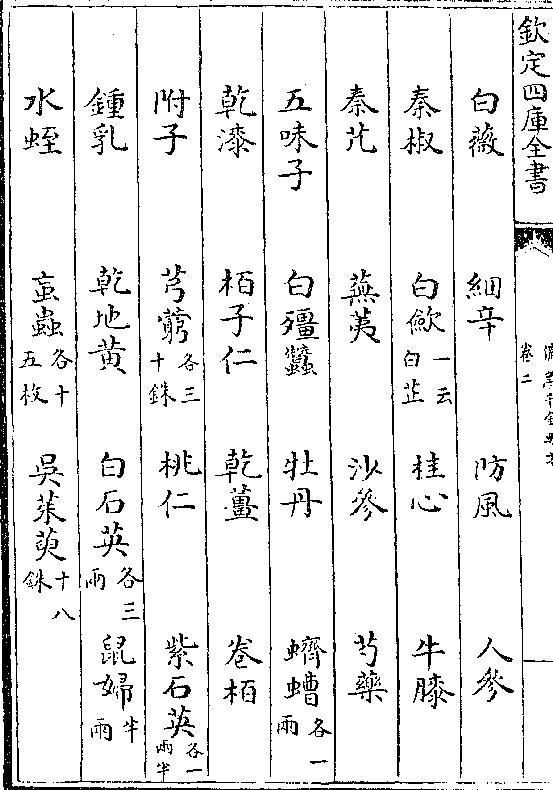 欽定四庫全書
卷二
白薇 細辛 防風 人參
秦椒 白歛一云白芷 桂心 牛膝
秦艽 蕪荑 沙參 芍藥
五味子 白殭蠶 牡丹 蠐螬各一兩
乾漆 栢子仁 乾薑 卷栢
附子 芎藭各三十銖 桃仁 紫石英各一兩半
鍾乳 乾地黄 白石英各三兩 鼠婦半兩
水蛭 䖟蟲各十五枚 吳茱萸十八銖